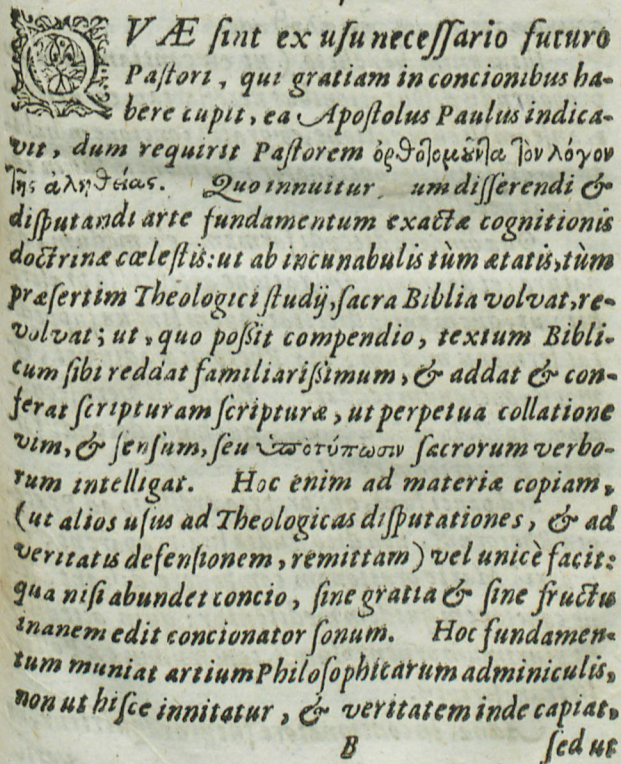 QVÆ ſint ex uſu neceſſario futuro
Paſtori, qui gratiam in concionibus ha-
bere cupit, ea Apoſtolus Paulus indica-
vit, dum requirit Paſtorem ὀρθοτομοῦντα τὸν λόγον
τῆς ἀληθείας. Quo innuitur um diſſerendi &
diſputandi arte fundamentum exactæ cognitionis
doctrinæ cœleſtis: ut ab incunabulis tùm ætatis, tùm
præſertim Theologici ſtudij, ſacra Biblia volvat, re-
volvat; ut, quo poſſit compendio, textum Bibli-
cum ſibi reddat familiariſſimum, & addat & con-
ferat ſcripturam ſcripturæ, ut perpetua collatione
vim, & ſenſum, ſeu ὑποτύπωσιν ſacrorum verbo-
rum intelligat. Hoc enim ad materiæ copiam,
(ut alios uſus ad Theologicas diſputationes, & ad
veritatis defenſionem, remittam) vel unicè facit:
qua niſi abundet concio, ſine gratia & ſine fructu
inanem edit concionator ſonum. Hoc fundamen-
tum muniat artium Philoſophicarum adminiculis,
non ut hiſce innitatur, & veritatem inde capiat,
B ſed ut